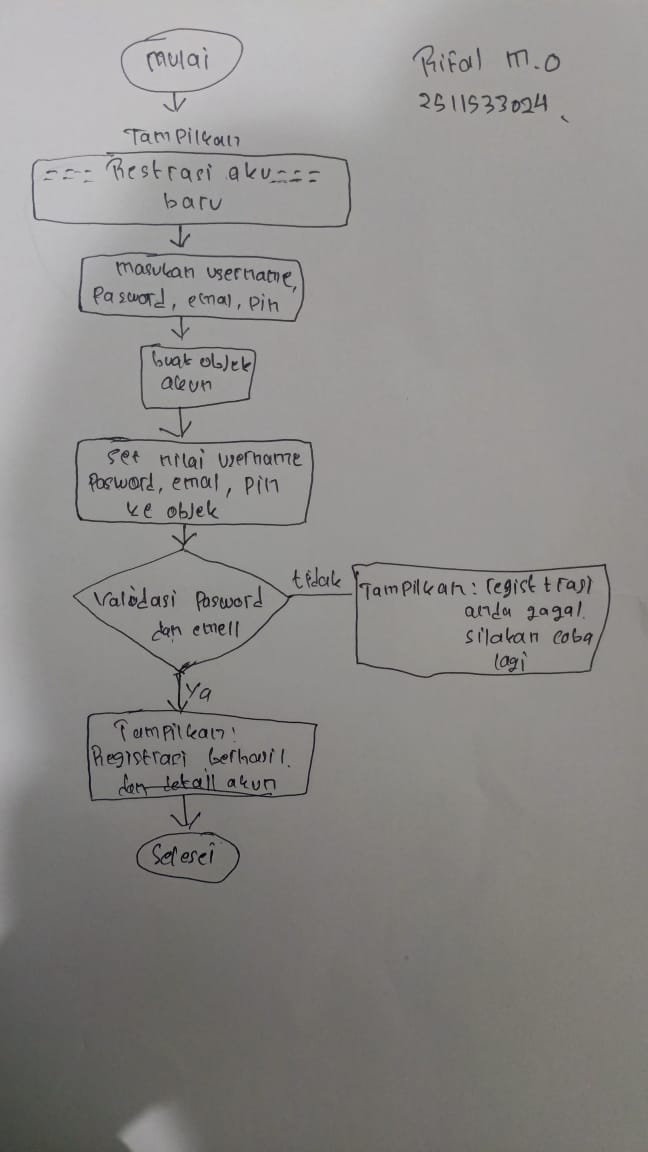 mulai
Rifal M.O
2511533024
Tampilkan
=== Restrasi aku===
baru
masukan username,
Pasword, email, pin
buat objek
akun
set nilai username
Pasword, email, pin
ke objek
Validasi Pasword
dan emell
tidak
Tampilkan: regist trasi
anda gagal.
silakan coba
lagi
Ya
Tampilkan:
Registrasi berhasil.
dan detail akun
Selesei